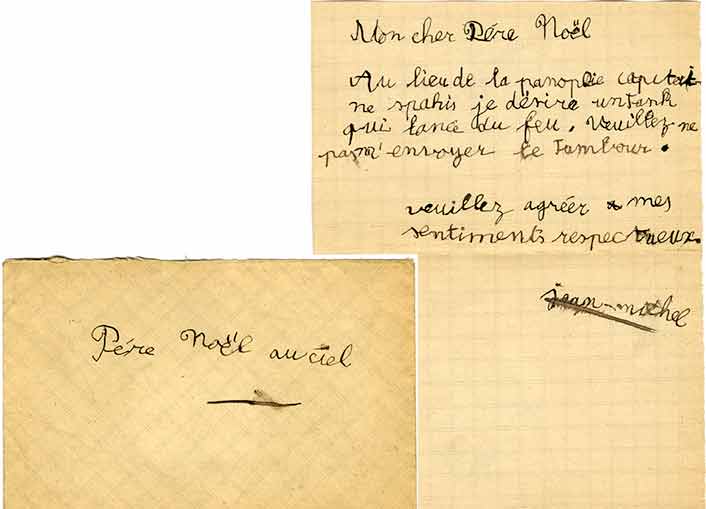 Mon cher Pére Noël
Au lieu de la panoplie capitai
ne spahis je désire un tank
qui lance du feu. Veuillez ne
pas m'envoyer le Tambour.
veuillez agréer mes
sentiments respectueux.
jean-michel
Pére Noël au ciel